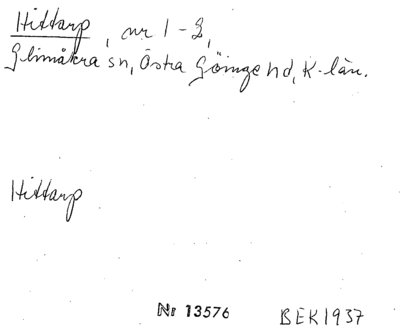 Hittarp, nr 1-2,
Glimåkra sn, Östra Göinge hd, K-län.
Hittarp
Nr 13576 BEK1937